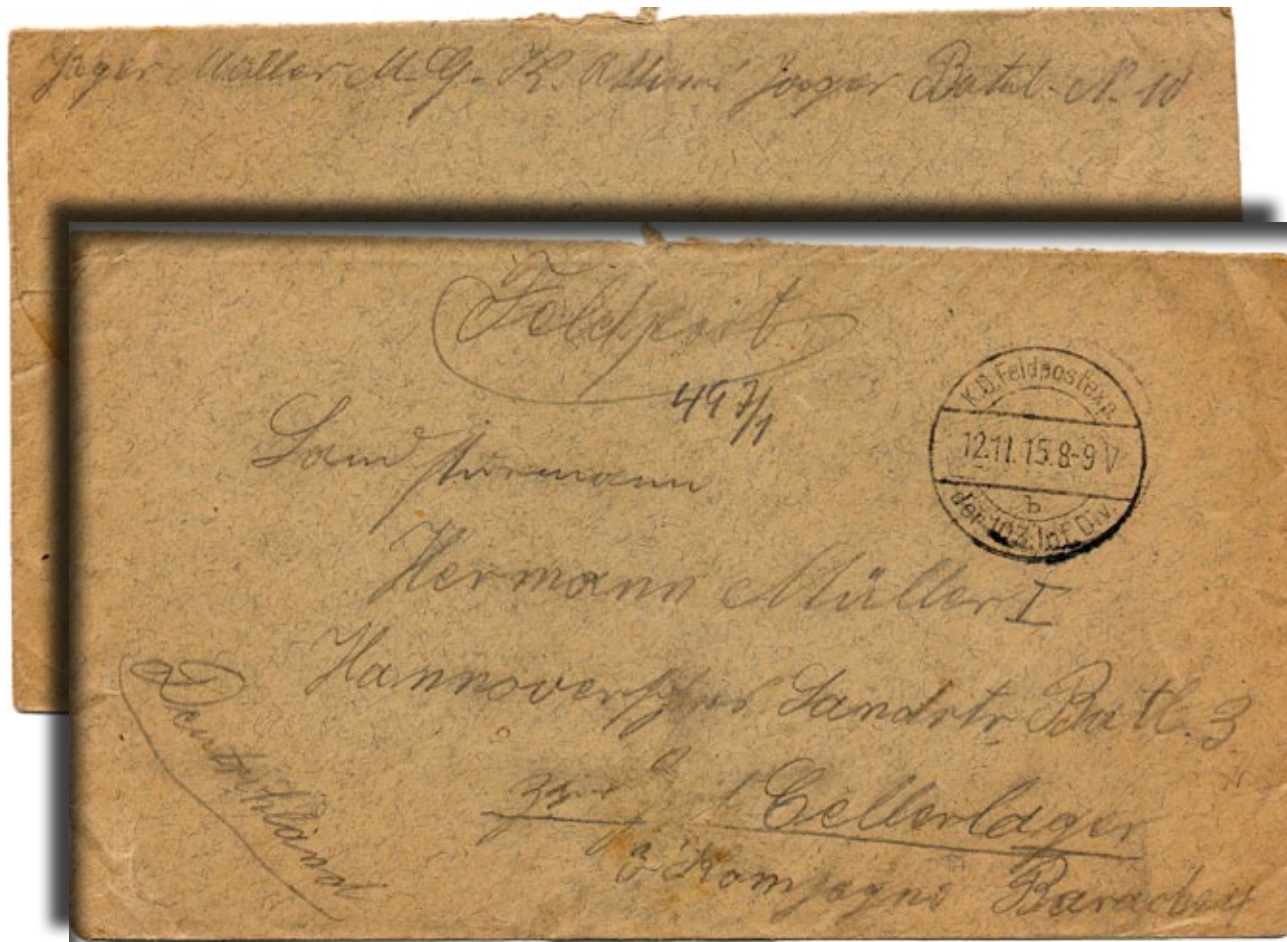 Jäger Müller M. G. K. Jäger Batail. N. 10
Feldpost
497/1
K.D. Feldpostexp.
12.11.15.8-9 V
b
der 103. Inf. Div.
Landsturmann
Hermann Müller I
Hannoversches Landstr. Batl. 3
Cellerlager
3 Kompagni
Deutschland